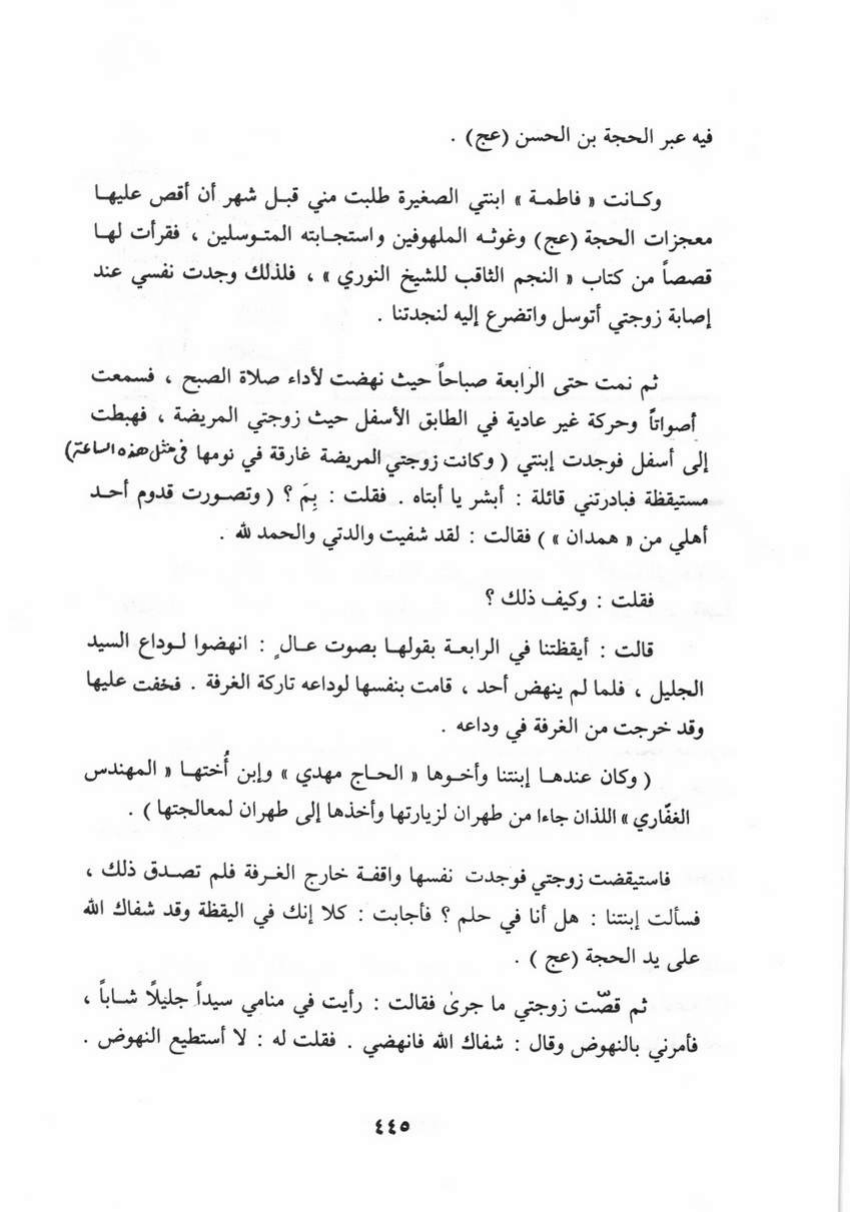 فيه عبر الحجة بن الحسن (عج) .
وكانت « فاطمة » ابنتي الصغيرة طلبت مني قبل شهر أن أقص عليها
معجزات الحجة (عج) وغوثه الملهوفين واستجابته المتوسلين ، فقرأت لها
قصصاً من كتاب « النجم الثاقب للشيخ النوري » ، فلذلك وجدت نفسي عند
إصابة زوجتي أتوسل واتضرع إليه لنجدتنا .
ثم نمت حتى الرابعة صباحاً حيث نهضت لأداء صلاة الصبح ، فسمعت
أصواتاً وحركة غير عادية في الطابق الأسفل حيث زوجتي المريضة ، فهبطت
إلى أسفل فوجدت إبنتي ( وكانت زوجتي المريضة غارقة في نومها في مثل هذه الساعة)
مستيقظة فبادرتني قائلة : أبشر يا أبتاه . فقلت : بِمَ ؟ ( وتصورت قدوم أحد
أهلي من « همدان » ) فقالت : لقد شفيت والدتي والحمد لله .
فقلت : وكيف ذلك ؟
قالت : أيقظتنا في الرابعة بقولها بصوت عالٍ : انهضوا لوداع السيد
الجليل ، فلما لم ينهض أحد ، قامت بنفسها لوداعه تاركة الغرفة . فخفت عليها
وقد خرجت من الغرفة في وداعه .
( وكان عندها إبنتنا وأخوها « الحاج مهدي » وإبن أُختها « المهندس
الغفّاري » اللذان جاءا من طهران لزيارتها وأخذها إلى طهران لمعالجتها ) .
فاستيقضت زوجتي فوجدت نفسها واقفة خارج الغرفة فلم تصدق ذلك ،
فسألت إبنتنا : هل أنا في حلم ؟ فأجابت : كلا إنك في اليقظة وقد شفاك الله
على يد الحجة (عج ) .
ثم قصّت زوجتي ما جرىٰ فقالت : رأيت في منامي سيداً جليلًا شاباً ،
فأمرني بالنهوض وقال : شفاك الله فانهضي . فقلت له : لا أستطيع النهوض .
٤٤٥